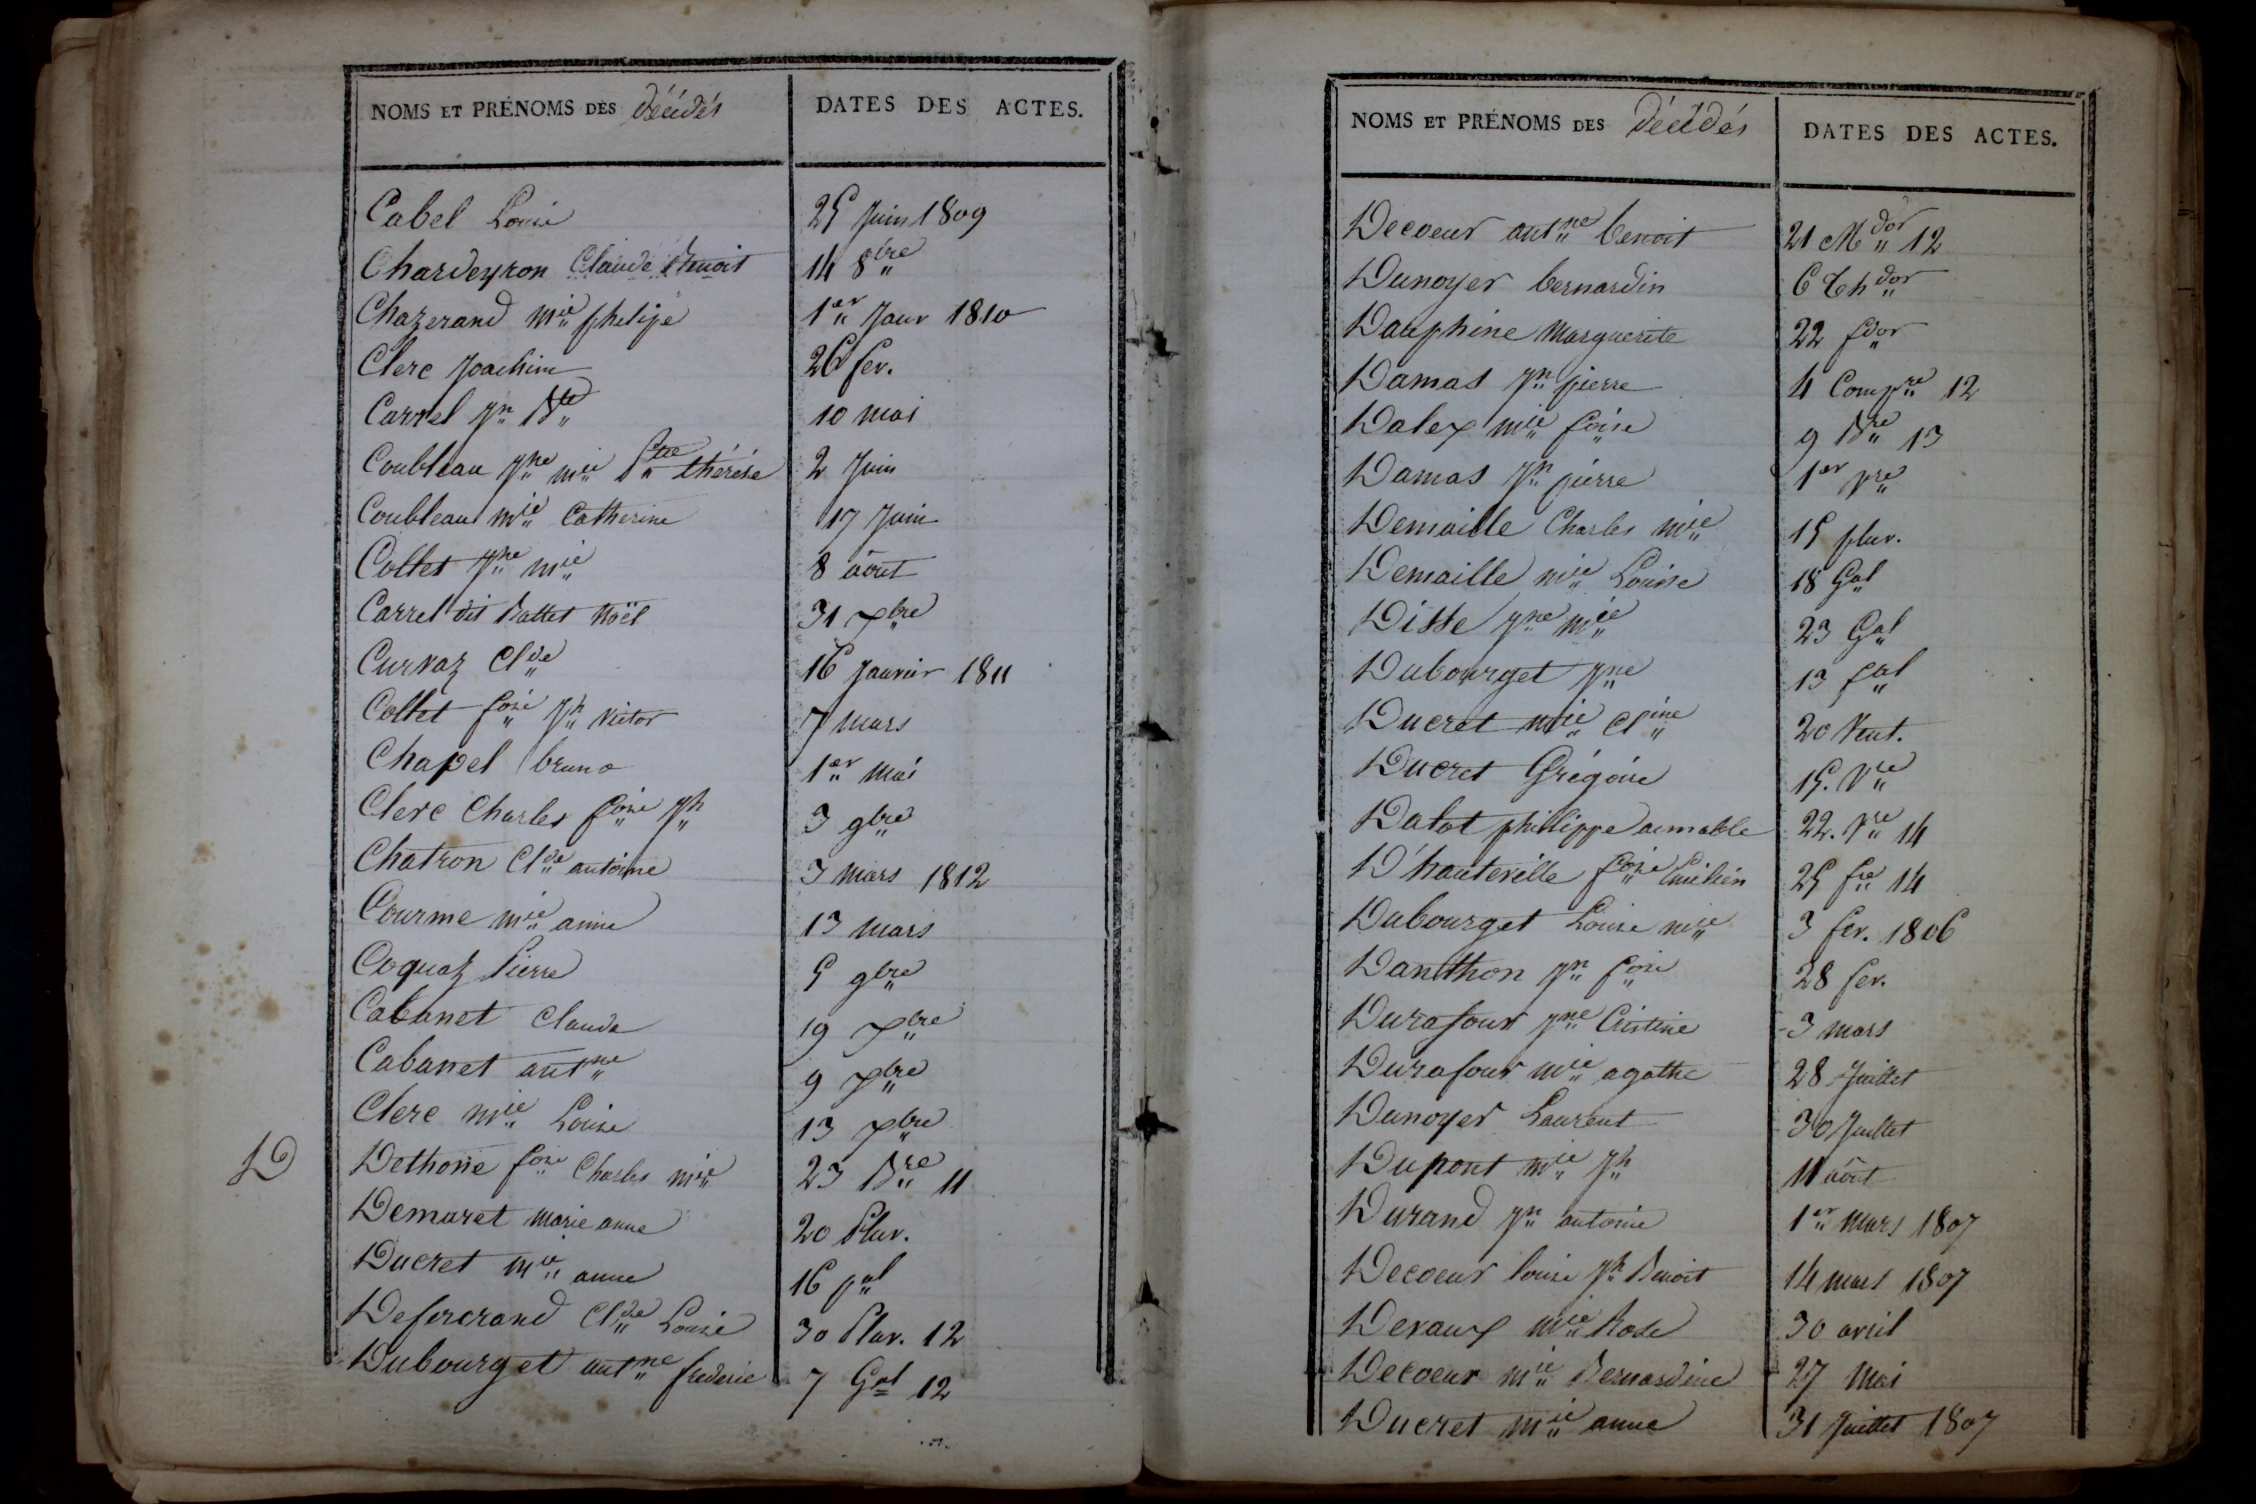 NOMS ET PRÉNOMS DES décédés DATES DES ACTES.
Cabel Louis 25 Juin 1809
Chardeyron Claude Benoit 14 8bre
Chazerand mie phelipe 1er Janv 1810
Clerc Joachim 26 fev.
Carrel Jn Bte 10 mai
Coubleau Jne mie thérèse 2 Juin
Coubleau mie Catherine 17 Juin
Collet Jne mie 8 août
Carrel dit Battet Noël 31 xbre
Curvaz Clde 16 Janvier 1811
Collet fois Jh Victor 7 mars
Chapel bruno 1er mai
Clerc Charles fois Jh 3 9bre
Chatron Clde antoine 3 mars 1812
Courme mie anne 13 mars
Coquaz Pierre 5 9bre
Cabanet Claude 19 xbre
Cabanet antne 9 xbre
Clerc mie Louise 13 xbre
D
Dethorie fois Charles mie 23 Bre 11
Demaret marie anne 20 Pluv.
Ducret mie anne 16 pal
Deforcrand Clde Louise 30 Pluv. 12
Dubourget antne frederic 7 Gal 12
NOMS ET PRÉNOMS DES décédés DATES DES ACTES.
Decoeur antne benoit 21 M dor 12
Dunoyer bernardin 6 th dor
Dauphine Marguerite 22 f dor
Damas Jn pierre 4 Compre 12
Dalex mie foise 9 Bre 13
Damas Jn pierre 1er
Demaille Charles mie 15 pluv.
Demaille mie Louise 18 Gal
Disse Jne mie 23 Gal
Dubourget Jne 13 fal
Ducret mie Cline 20 Vent.
Ducret Grégoire 15. Vre
Dalot philippe aimable 22. Vre 14
D'hauteville foise Emilien 25 fre 14
Dubourget Louise mie 3 fev. 1806
Danthon Jn fois 28 fev.
Durafour Jne Cristine 3 mars
Durafour mie agathe 28 Juillet
Dunoyer Laurent 30 Juillet
Dupont mie Jh 11 août
Durand Jn antoine 1er mars 1807
Decoeur louise Jh Benoit 14 mars 1807
Devaux mie Rose 30 avril
Decoeur mie Bernardine 27 Mai
Ducret mie anne 31 Juillet 1807